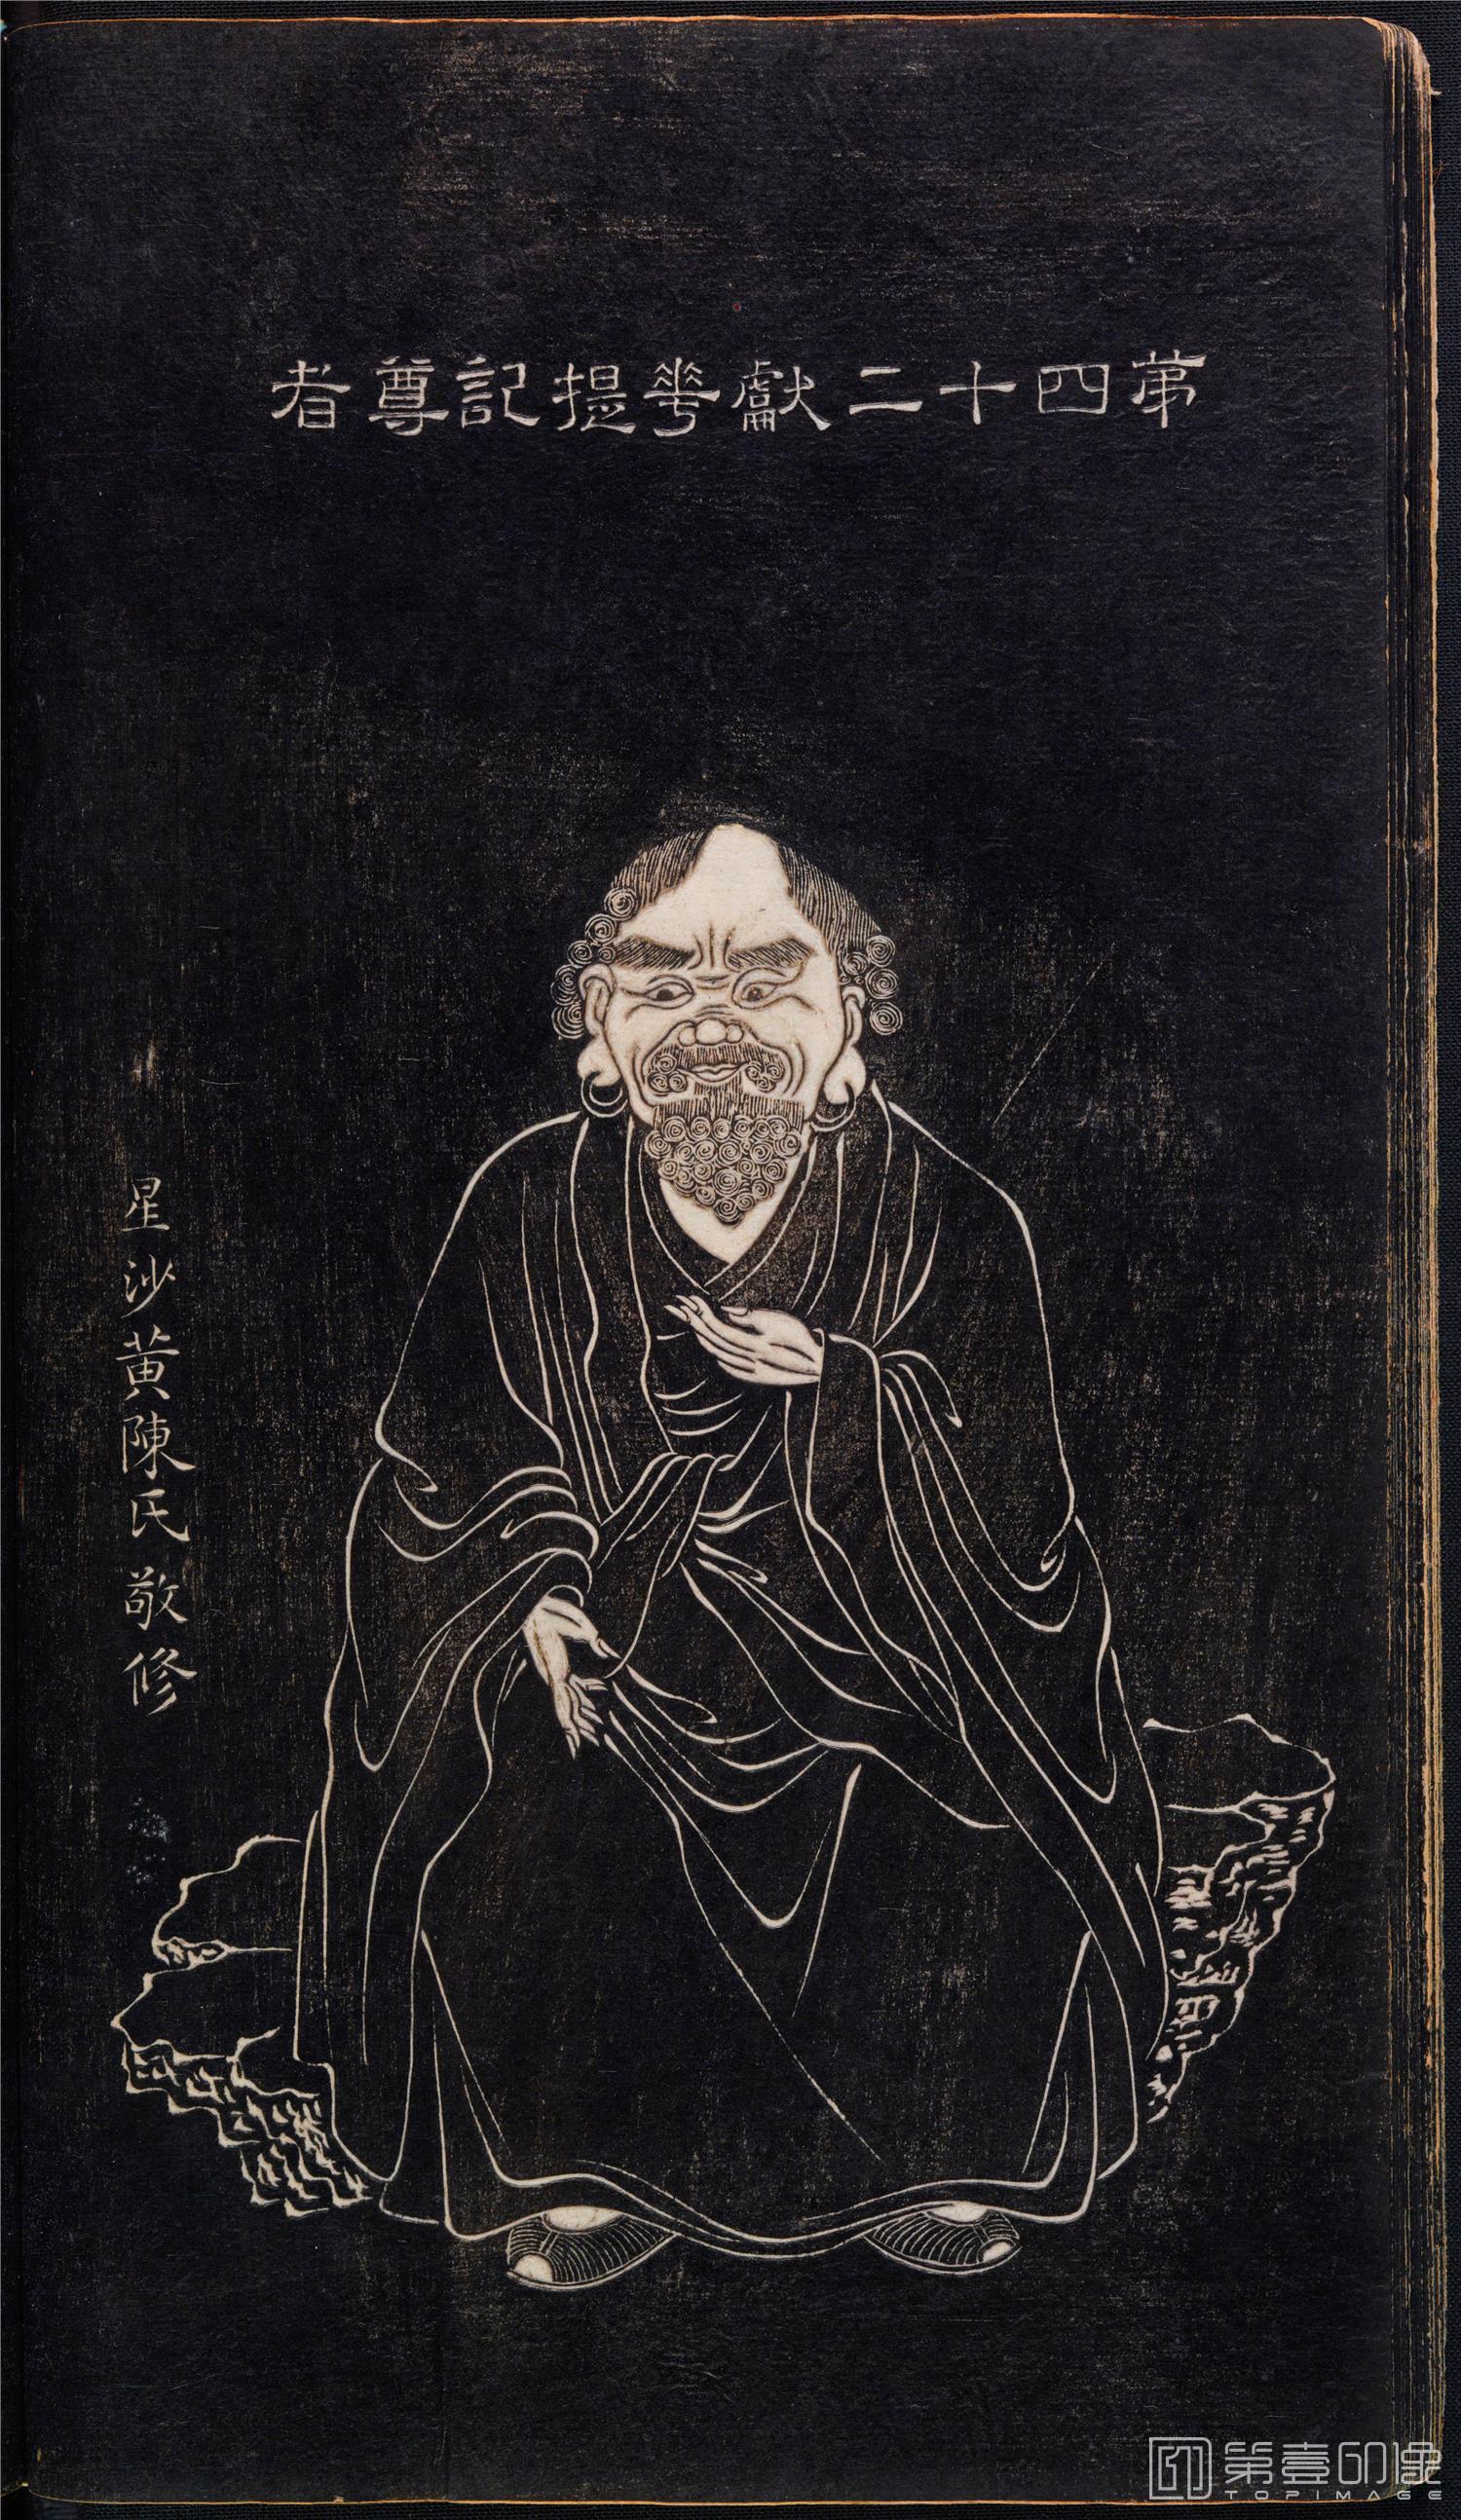 苐四十二獻華提記尊者
星沙黄陳氏敬修
第壹印像
TOPIMAGE